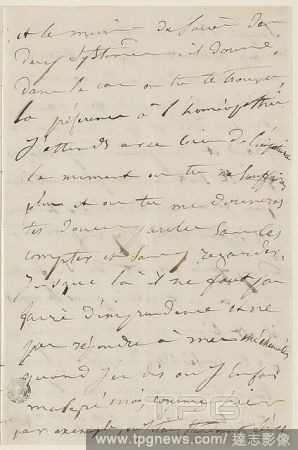 et le moins de succès des
deux systèmes s'il donne,
dans le cas où tu te trouves,
la préférence à l'homéopathie
J'attends avec bien de l'impatience
le moment où tu ne souffriras
plus et où tu me donneras
tes douces paroles sans les
compter et sans y regarder.
Jusque là il ne faut pas
faire d'imprudence et ne
pas répondre à mes méchancetés
quand je dis
malgré moi, comme hier
par exemple,
TPG
www.tpgnews.com / 達志影像